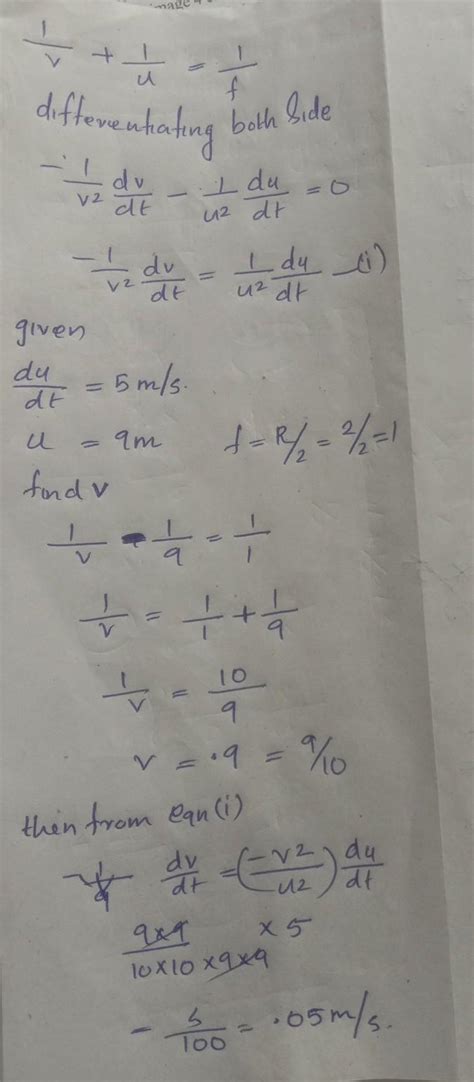 1/v + 1/u = 1/f
differentiating both side
-1/v² dv/dt - 1/u² du/dt = 0
-1/v² dv/dt = 1/u² du/dt —(i)
given
du/dt = 5 m/s.
u = 9m f = R/2 = 2/2 = 1
find v
1/v - 1/9 = 1/1
1/v = 1/1 + 1/9
1/v = 10/9
v = .9 = 9/10
then from eqn (i)
dv/dt = (-v²/u²) du/dt
9×9/10×10×9×9 × 5
- 5/100 = .05 m/s.